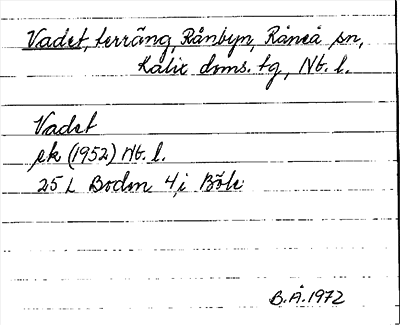 Vadet, terräng, Rånbyn, Råneå sn,
Kalix doms. tg, Nb. l.
Vadet
ek (1952) Nb. l.
25 L Boden 4 i Böle
B.Å. 1972